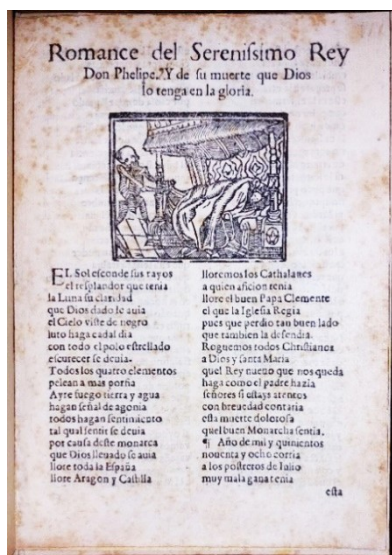 Romance del Sereniſsimo Rey
Don Phelipe. Y de ſu muerte que Dios
lo tenga en la gloria.
EL Sol eſconde ſus rayos
el reſplandor que tenia
la Luna ſu claridad
que Dios dado le auia
el Cielo viſte de negro
luto haga cada l dia
con todo el polo eſtrellado
eſcurecer ſe deuia.
Todos los quatro elementos
pelean a mas porfia
Ayre fuego tierra y agua
hagan ſeñal de agonia
todos hagan ſentimiento
tal qual ſentir ſe deuia
por cauſa deſte monarca
que Dios lleuado ſe auia
llore toda la Eſpaña
llore Aragon y Caſtilla
lloremos los Cathalanes
a quien aficion tenia
llore el buen Papa Clemente
el que la Igleſia Regia
pues que perdio tan buen lado
que tambien la defendia.
Roguemos todos Chriſtianos
a Dios y ſanta Maria
quel Rey nueuo que nos queda
haga como el padre hazia
ſeñores ſi eſtays atentos
con breuedad contaria
eſta muerte doloroſa
quel buen Monarcha ſentia.
¶ Año de mil y quinientos
nouenta y ocho corria
a los poſtreros de Iulio
muy mala gana tenia
eſta